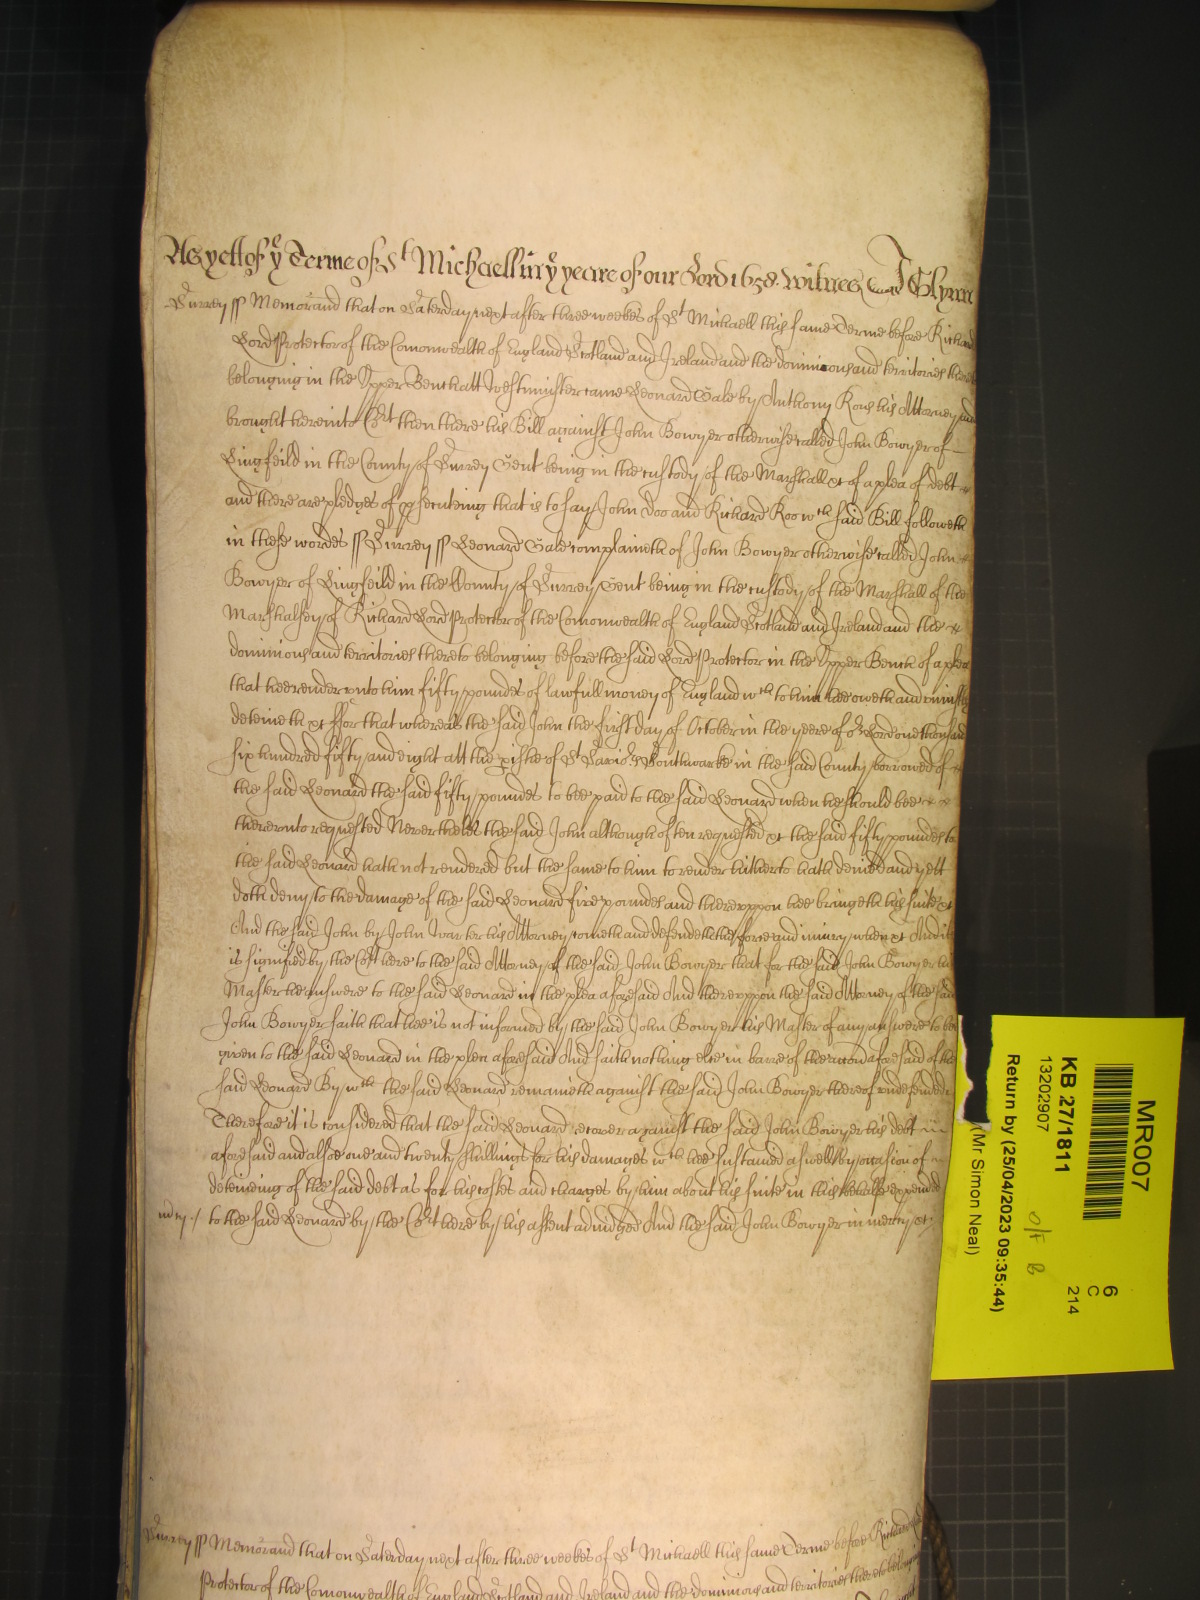 As yett of ye Terme of St Michaell in ye yeare of our Lord 1658. Witnes J Glynn
Surrey ss Memorand that on Saterday next after three weekes of St Michaell this same Terme before Richard
Lord Protector of the Comonwealth of England Scotland and Ireland and the dominions and territories thereto
belonging in the Upper Bench att Westminster came Leonard Gale by Anthony Rous his Attorney and
brought here into Cort then there his Bill against John Bowyer otherwise called John Bowyer of
Lingfeild in the County of Surrey Gent being in the custody of the Marshall &c of a plea of debt &
and there are pledges of psecuting that is to say John Doo and Richard Roo wch said Bill followeth
in these wordes ss Surrey ss Leonard Gale complaineth of John Bowyer otherwise called John
Bowyer of Lingfeild in the County of Surrey Gent being in the custody of the Marshall of the
Marshalsey of Richard Lord Protector of the Comonwealth of England Scotland and Ireland and the &
dominions and territories thereto belonging before the said Lord Protector in the Upper Bench of a plea
that hee render unto him fifty poundes of lawfull money of England wch to him hee oweth and uniustly
deteineth &c ffor that whereas the said John the first day of October in the yeere of or Lord one thousand
six hundred fifty and eight att the pishe of St Saviors Southwarke in the said County borrowed of &
the said Leonard the said fifty poundes to bee paid to the said Leonard when he should bee & &
thereunto requested Neverthelesse the said John although often requested &c the said fifty poundes to
the said Leonard hath not rendered but the same to him to render hitherto hath denied and yett
doth deny to the damage of the said Leonard five poundes and thereuppon hee bringeth his suite &c
And the said John by John Warter his Attorney cometh and defendeth the force and iniury when &c And it
is signified by the Cort here to the said Attorney of the said John Bowyer that for the said John Bowyer his
Master he answere to the said Leonard in the plea aforesaid And thereuppon the said Attorney of the said
John Bowyer saith that hee is not informed by the said John Bowyer his Master of any answere to bee
given to the said Leonard in the plea aforesaid And saith nothing else in barre of the accon aforesaid of the
said Leonard By wch the said Leonard remaineth against the said John Bowyer thereof undefended
Therefore it is considered that the said Leonard recover against the said John Bowyer his debt
aforesaid and alsoe one and twenty shillings for his damages wch hee sustained aswell by occasion of
deteining of the said debt as for his costes and charges by him about his suite in this behalfe expended
to the said Leonard by the Cort here by his assent adiudged And the said John Bowyer in mercy &c
Surrey ss Memorand that on Saterday next after three weekes of St Michaell this same Terme before Richard
Protector of the Comonwealth of England Scotland and Ireland and the dominions and territories thereto belonging
MR007
KB 27/1811
13202907
Return by (25/04/2023 09:35:44)
(Mr Simon Neal)
O/F B
6
C
214